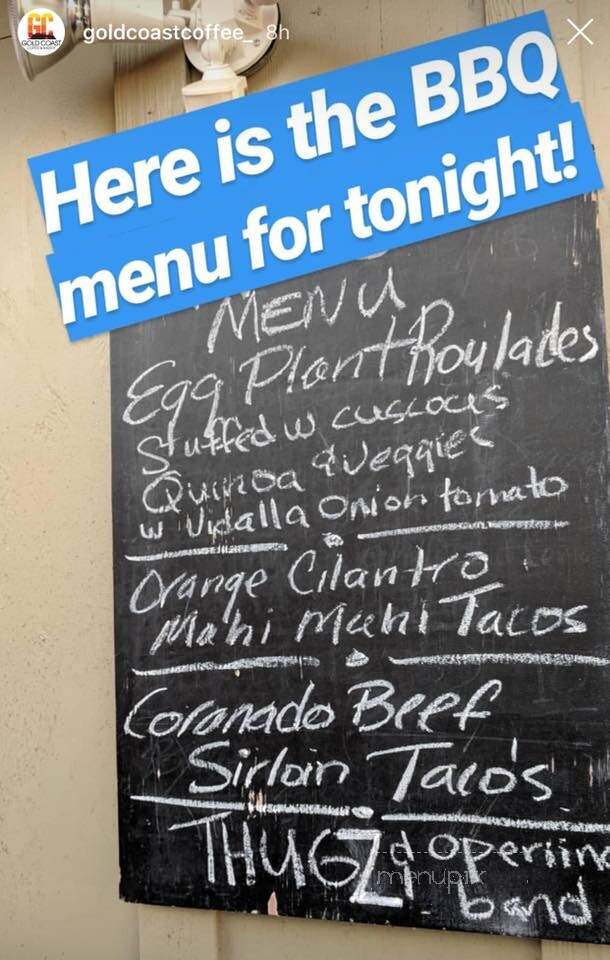 GC
GOLD COAST
goldcoastcoffee_ 8h
Here is the BBQ
menu for tonight!
MENU
Egg Plant Roulades
Stuffed w cuscous
Quinoa & Veggies
w Vidalla Onion tomato
Orange Cilantro
Mahi Mahi Tacos
Coranado Beef
Sirloin Taco's
THUGZ
operiin
band
menupix